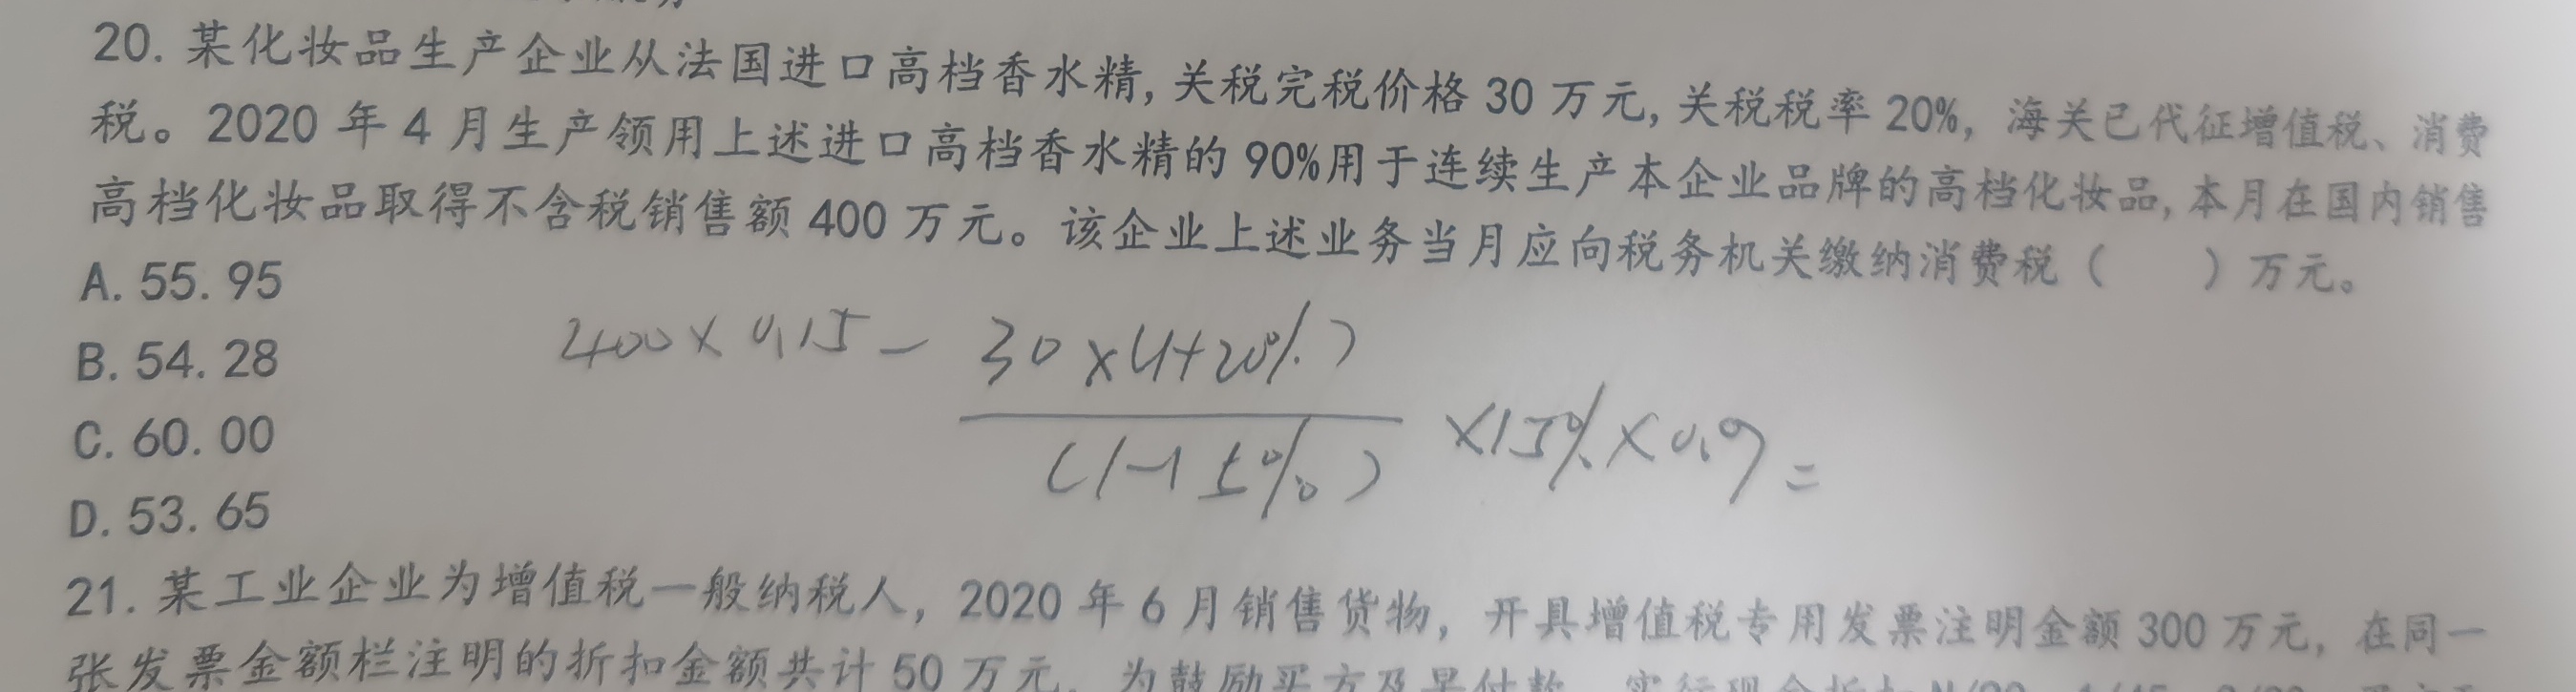 20. 某化妆品生产企业从法国进口高档香水精, 关税完税价格 30 万元, 关税税率 20%, 海关已代征增值税、消费
税。2020 年 4 月生产领用上述进口高档香水精的 90%用于连续生产本企业品牌的高档化妆品, 本月在国内销售
高档化妆品取得不含税销售额 400 万元。该企业上述业务当月应向税务机关缴纳消费税 (  ) 万元。
A. 55. 95
B. 54. 28
C. 60. 00
D. 53. 65
400×0.15 - 30×(1+20%)
(1-15%) ×15%×0.9=
21. 某工业企业为增值税一般纳税人, 2020 年 6 月销售货物, 开具增值税专用发票注明金额 300 万元, 在同一
张发票金额栏注明的折扣金额共计 50 万元, 为鼓励买方及早付款